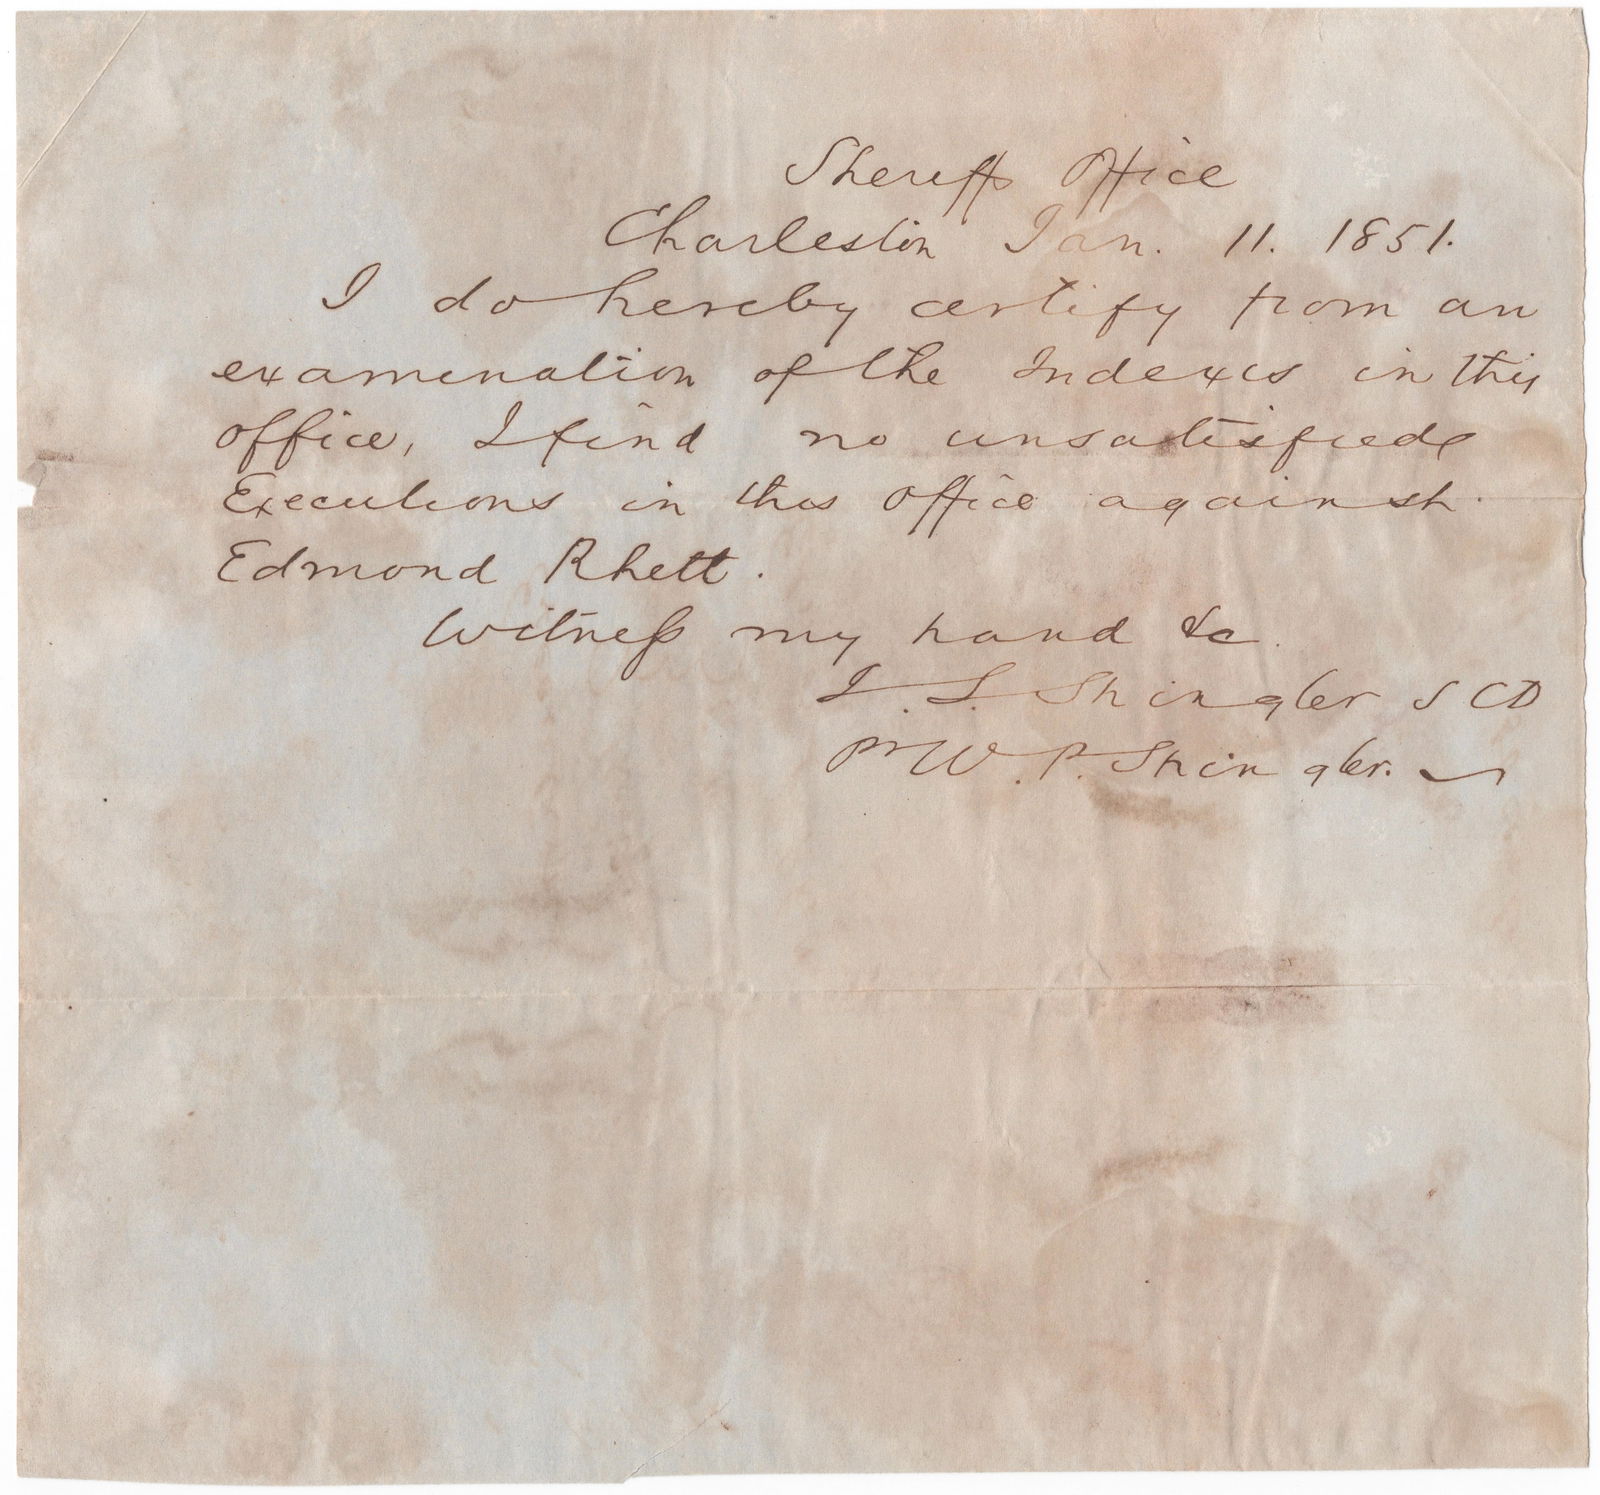 Sheriffs Office
Charleston Jan. 11. 1851.
I do hereby certify from an
examination of the Indexes in this
office, I find no unsatisfied
Executions in this office against
Edmond Rhett.
Witness my hand &c.
J. L. Shingler S C D
Pr W. P. Shingler.